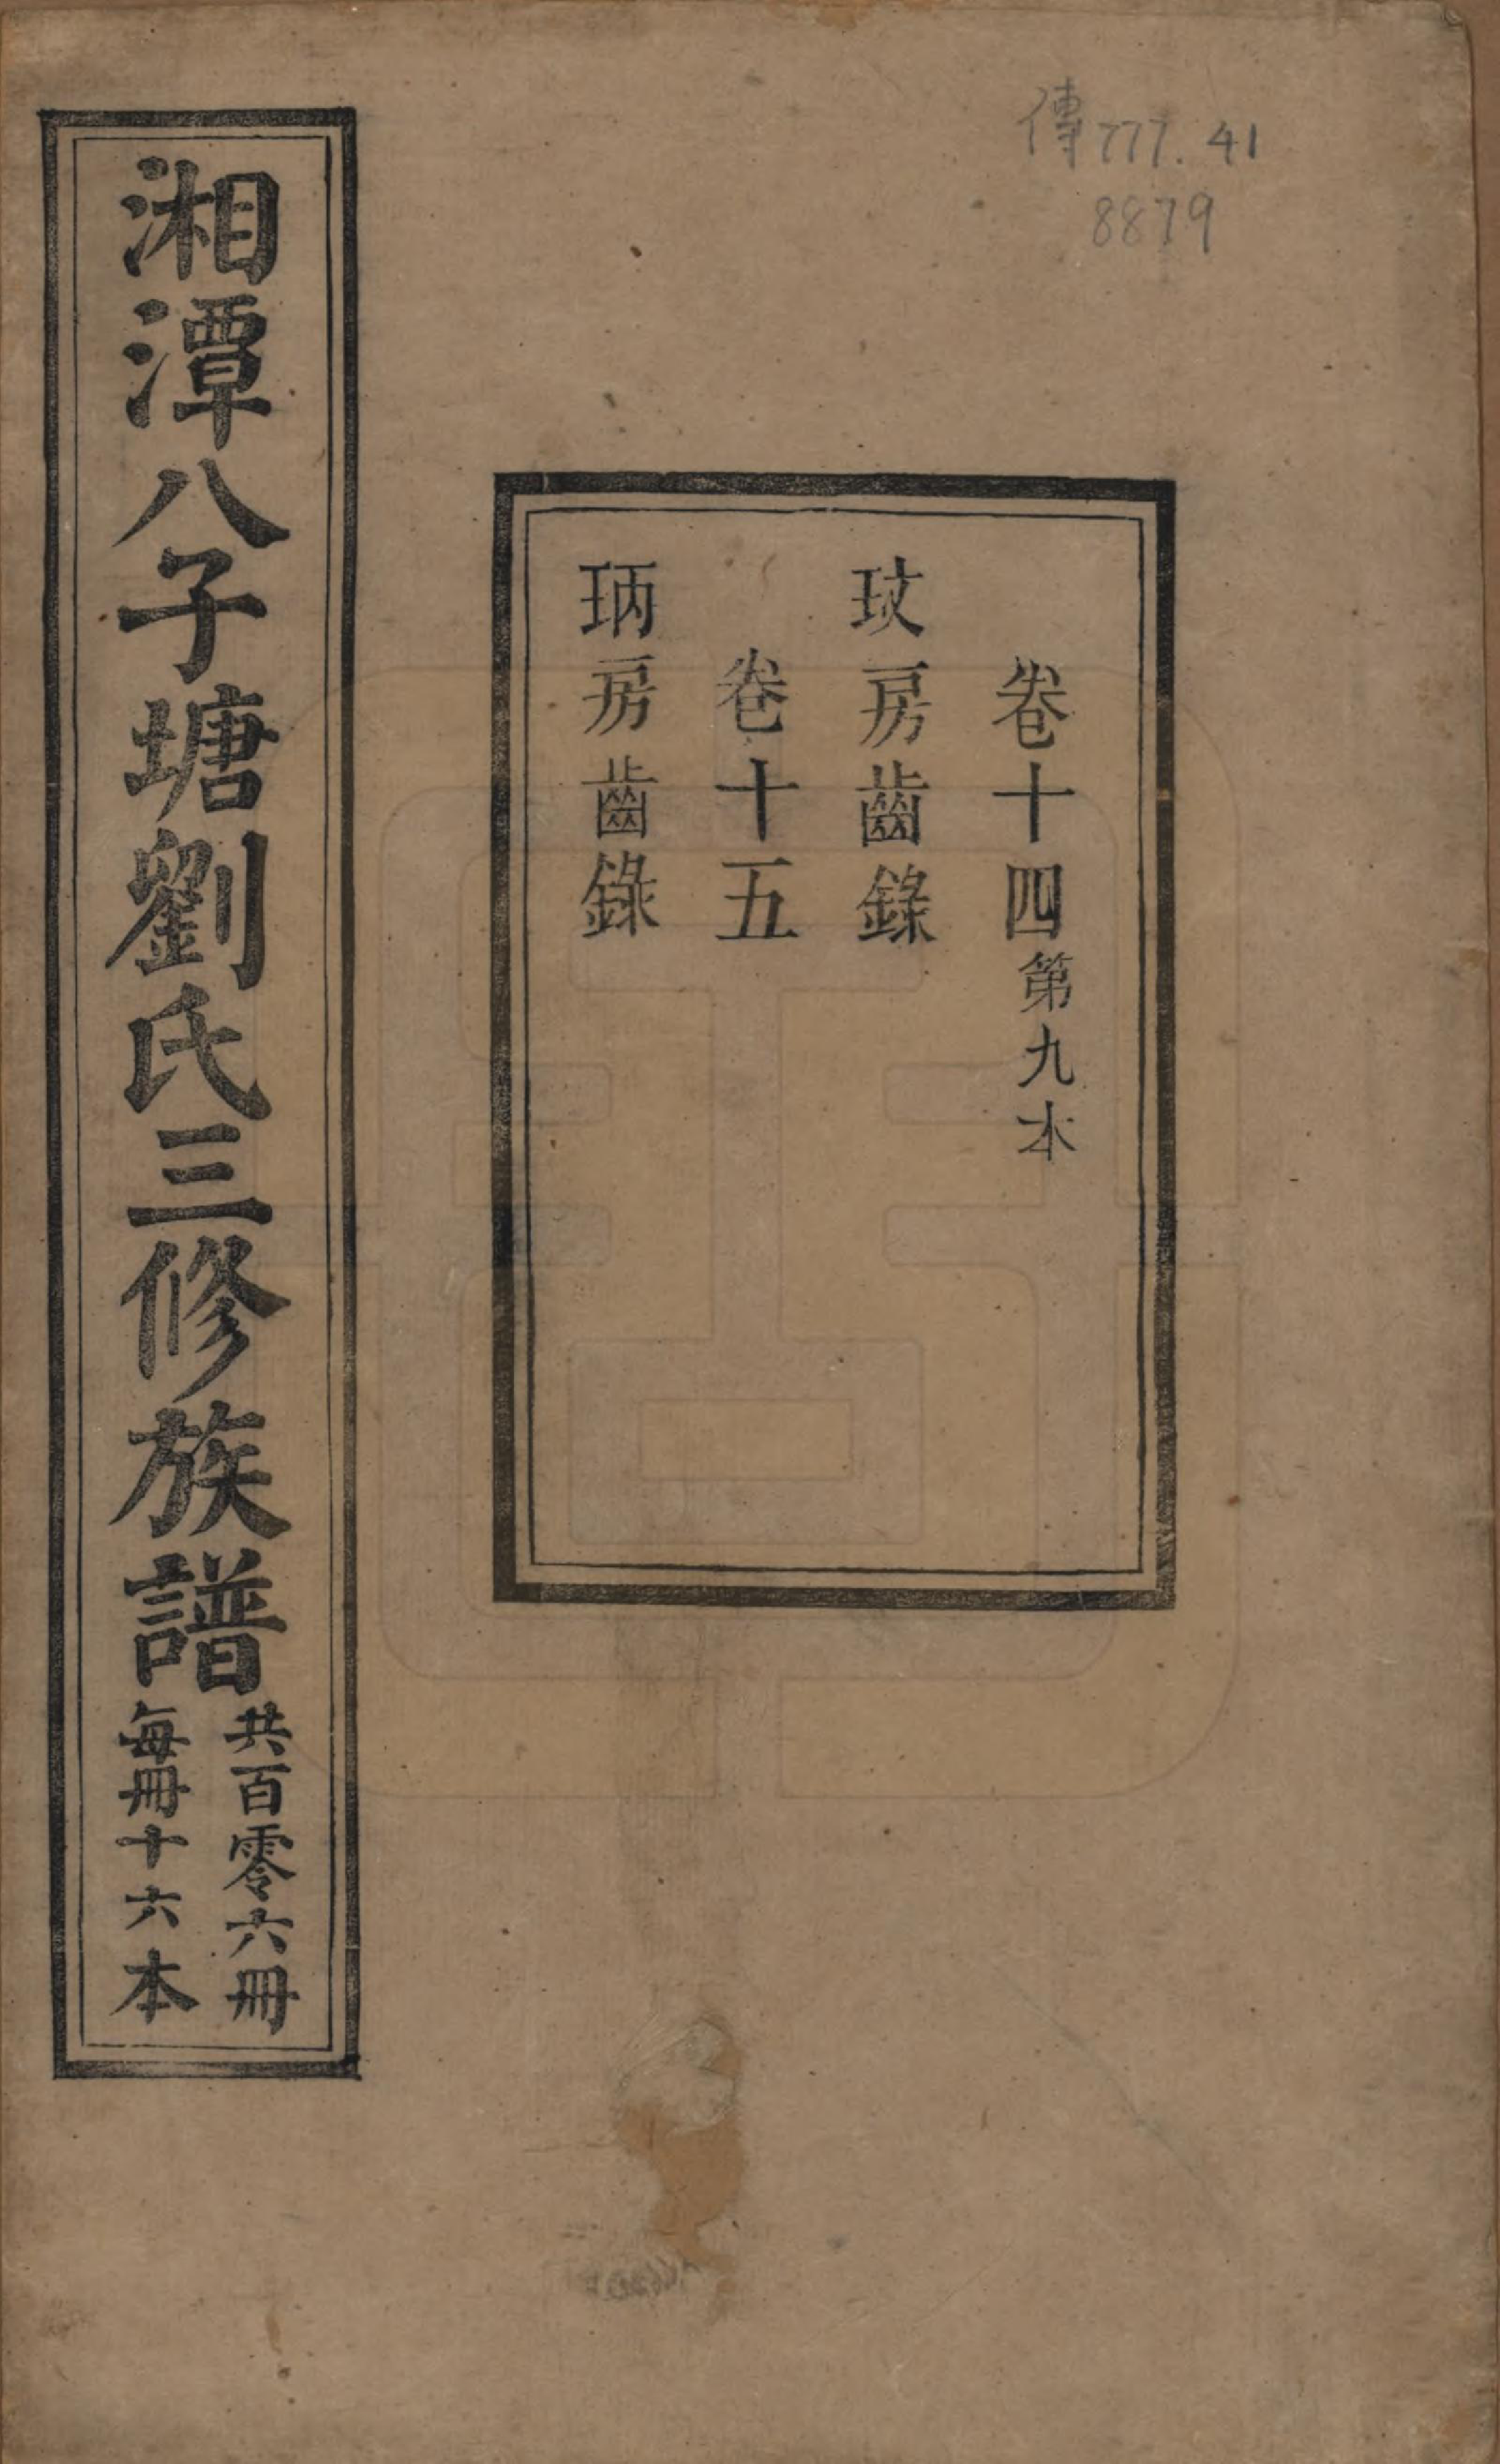 傳777.41
8879
卷十四第九本
玟房齒錄
卷十五
琋房齒錄
湘潭八子塘劉氏三修族譜
共百零六冊
每冊十六本